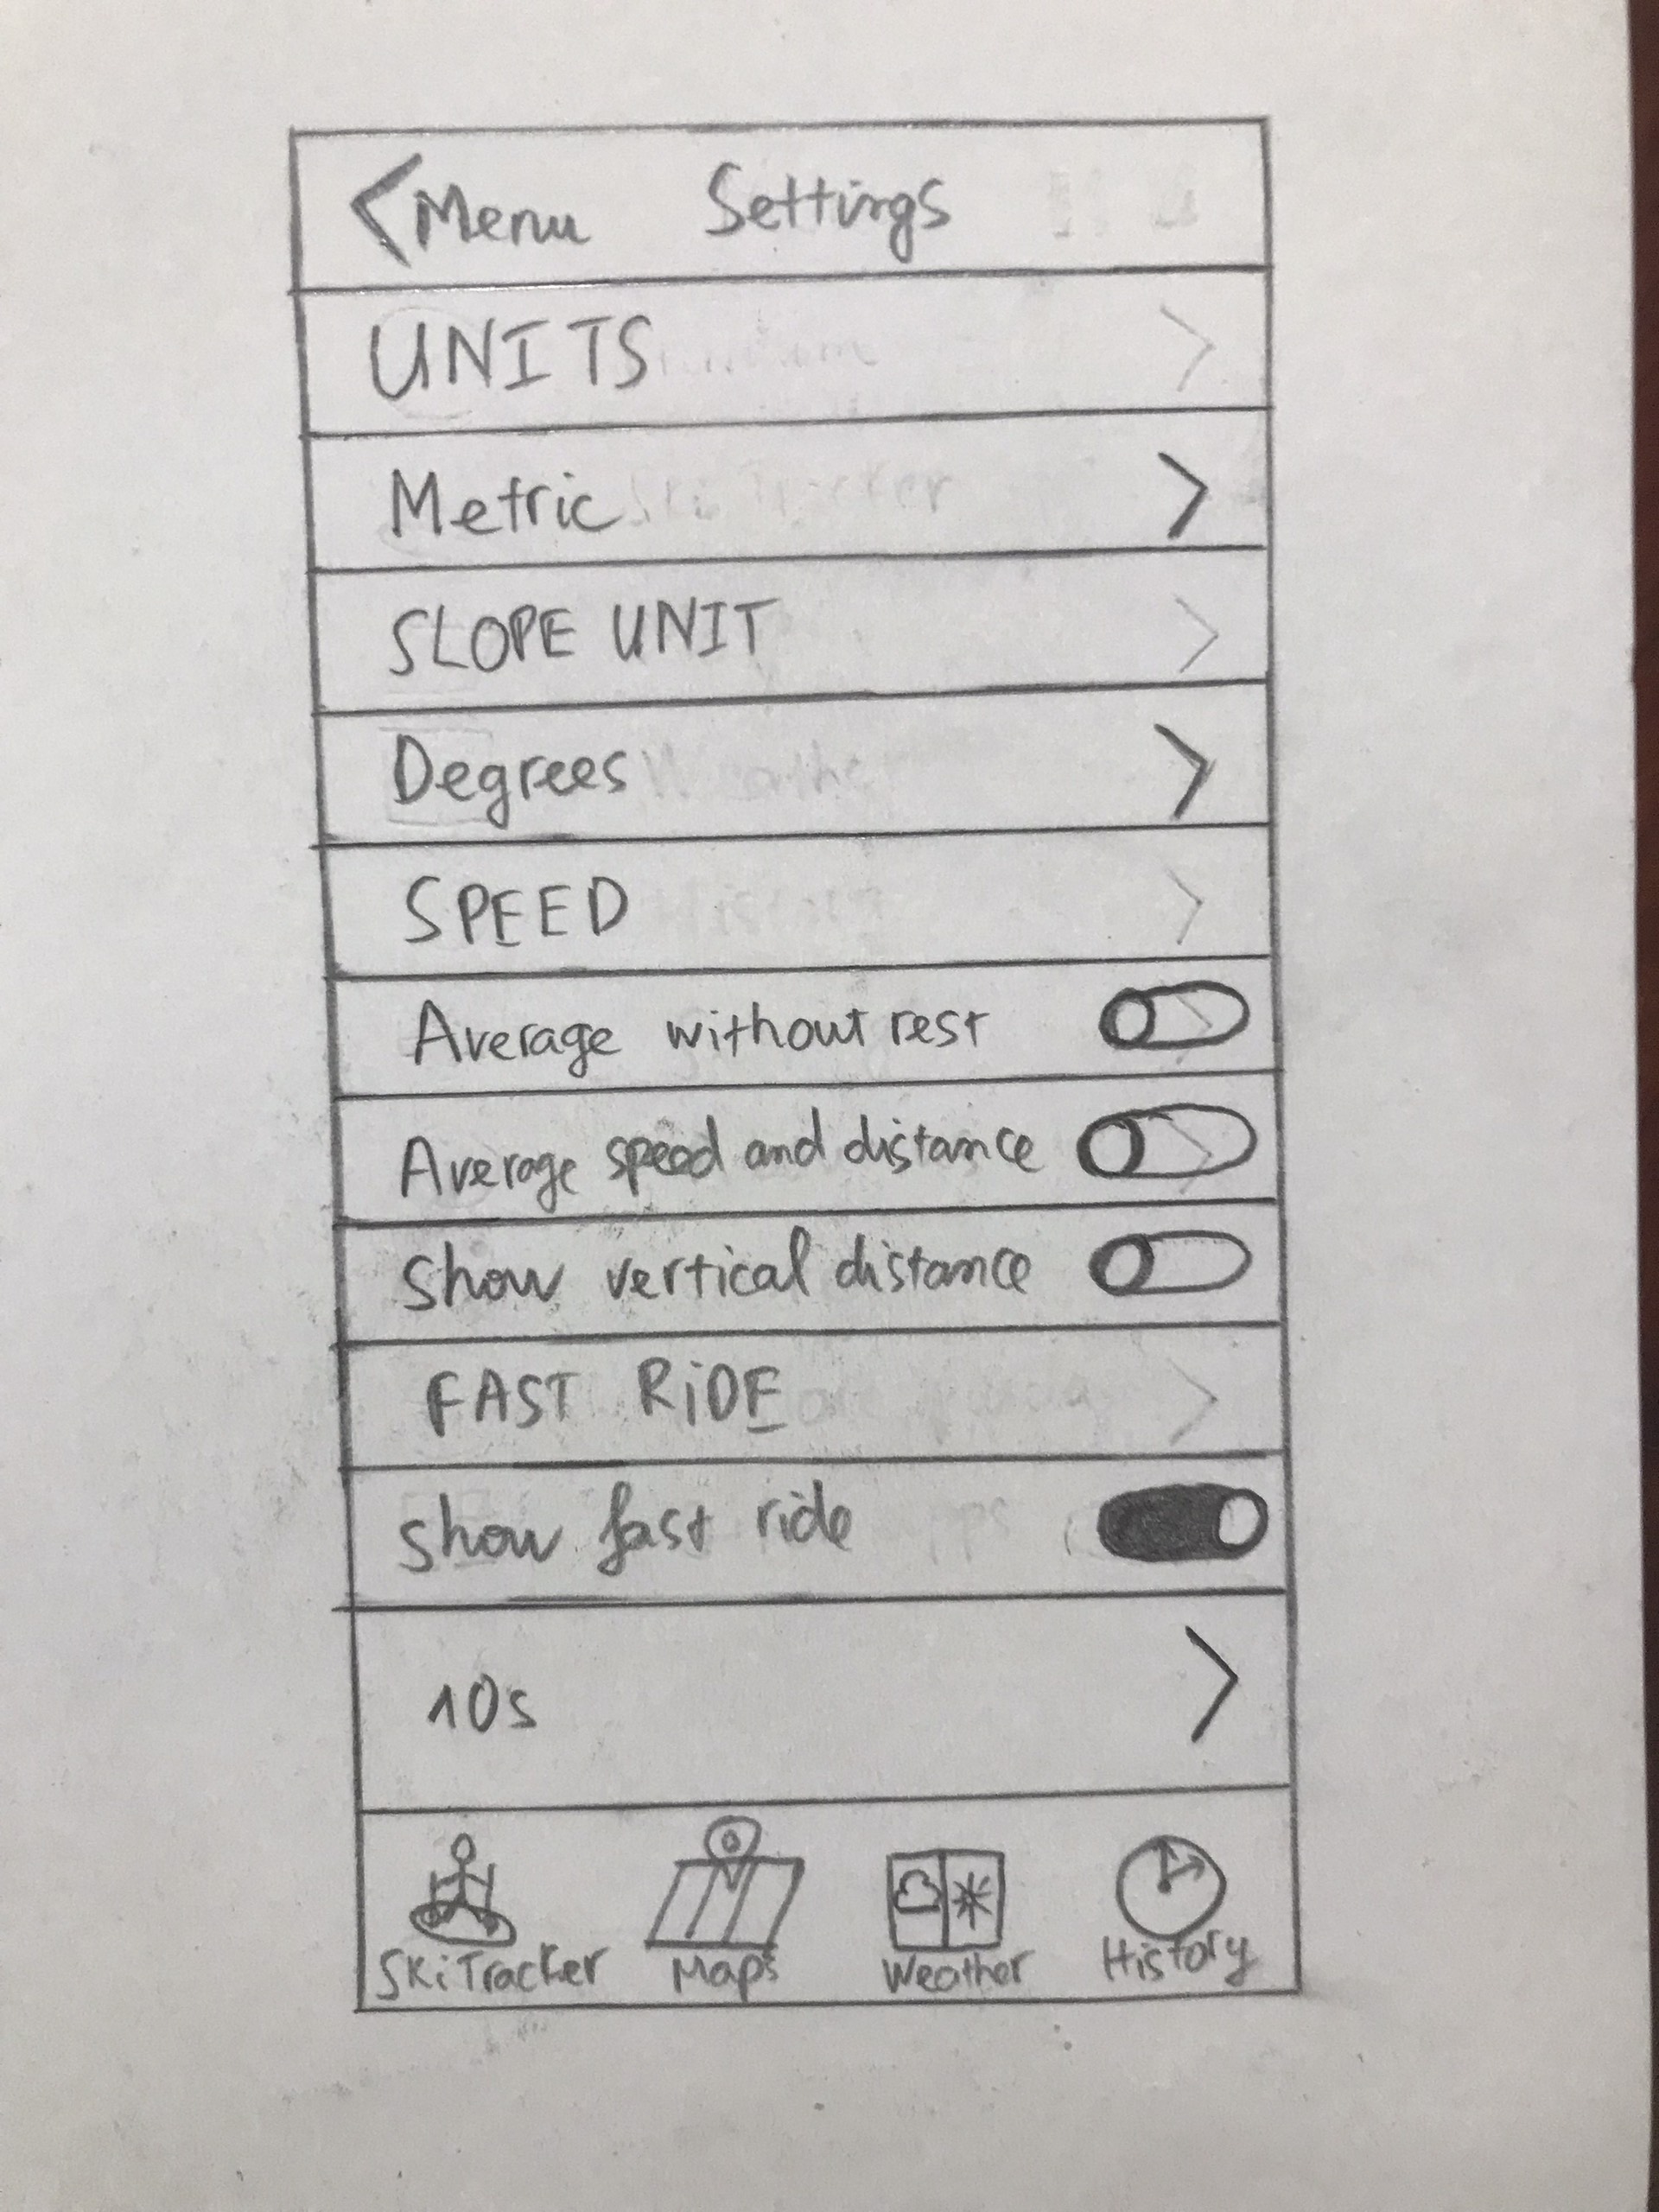 Menu Settings
UNITS
Metric
SLOPE UNIT
Degrees
SPEED
Average without rest
Average speed and distance
Show vertical distance
FAST RiDE
Show fast ride
10s
SkiTracker Maps Weather History